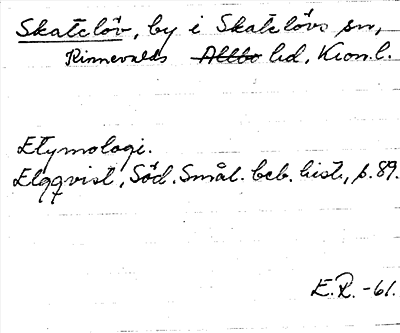 Skatelöv, by i Skatelövs sn,
Kinnevalds Allbo hd, Kron. l.
Etymologi.
Elgqvist, Söd. Smål. beb. hist., s. 89.
E.R. -61.